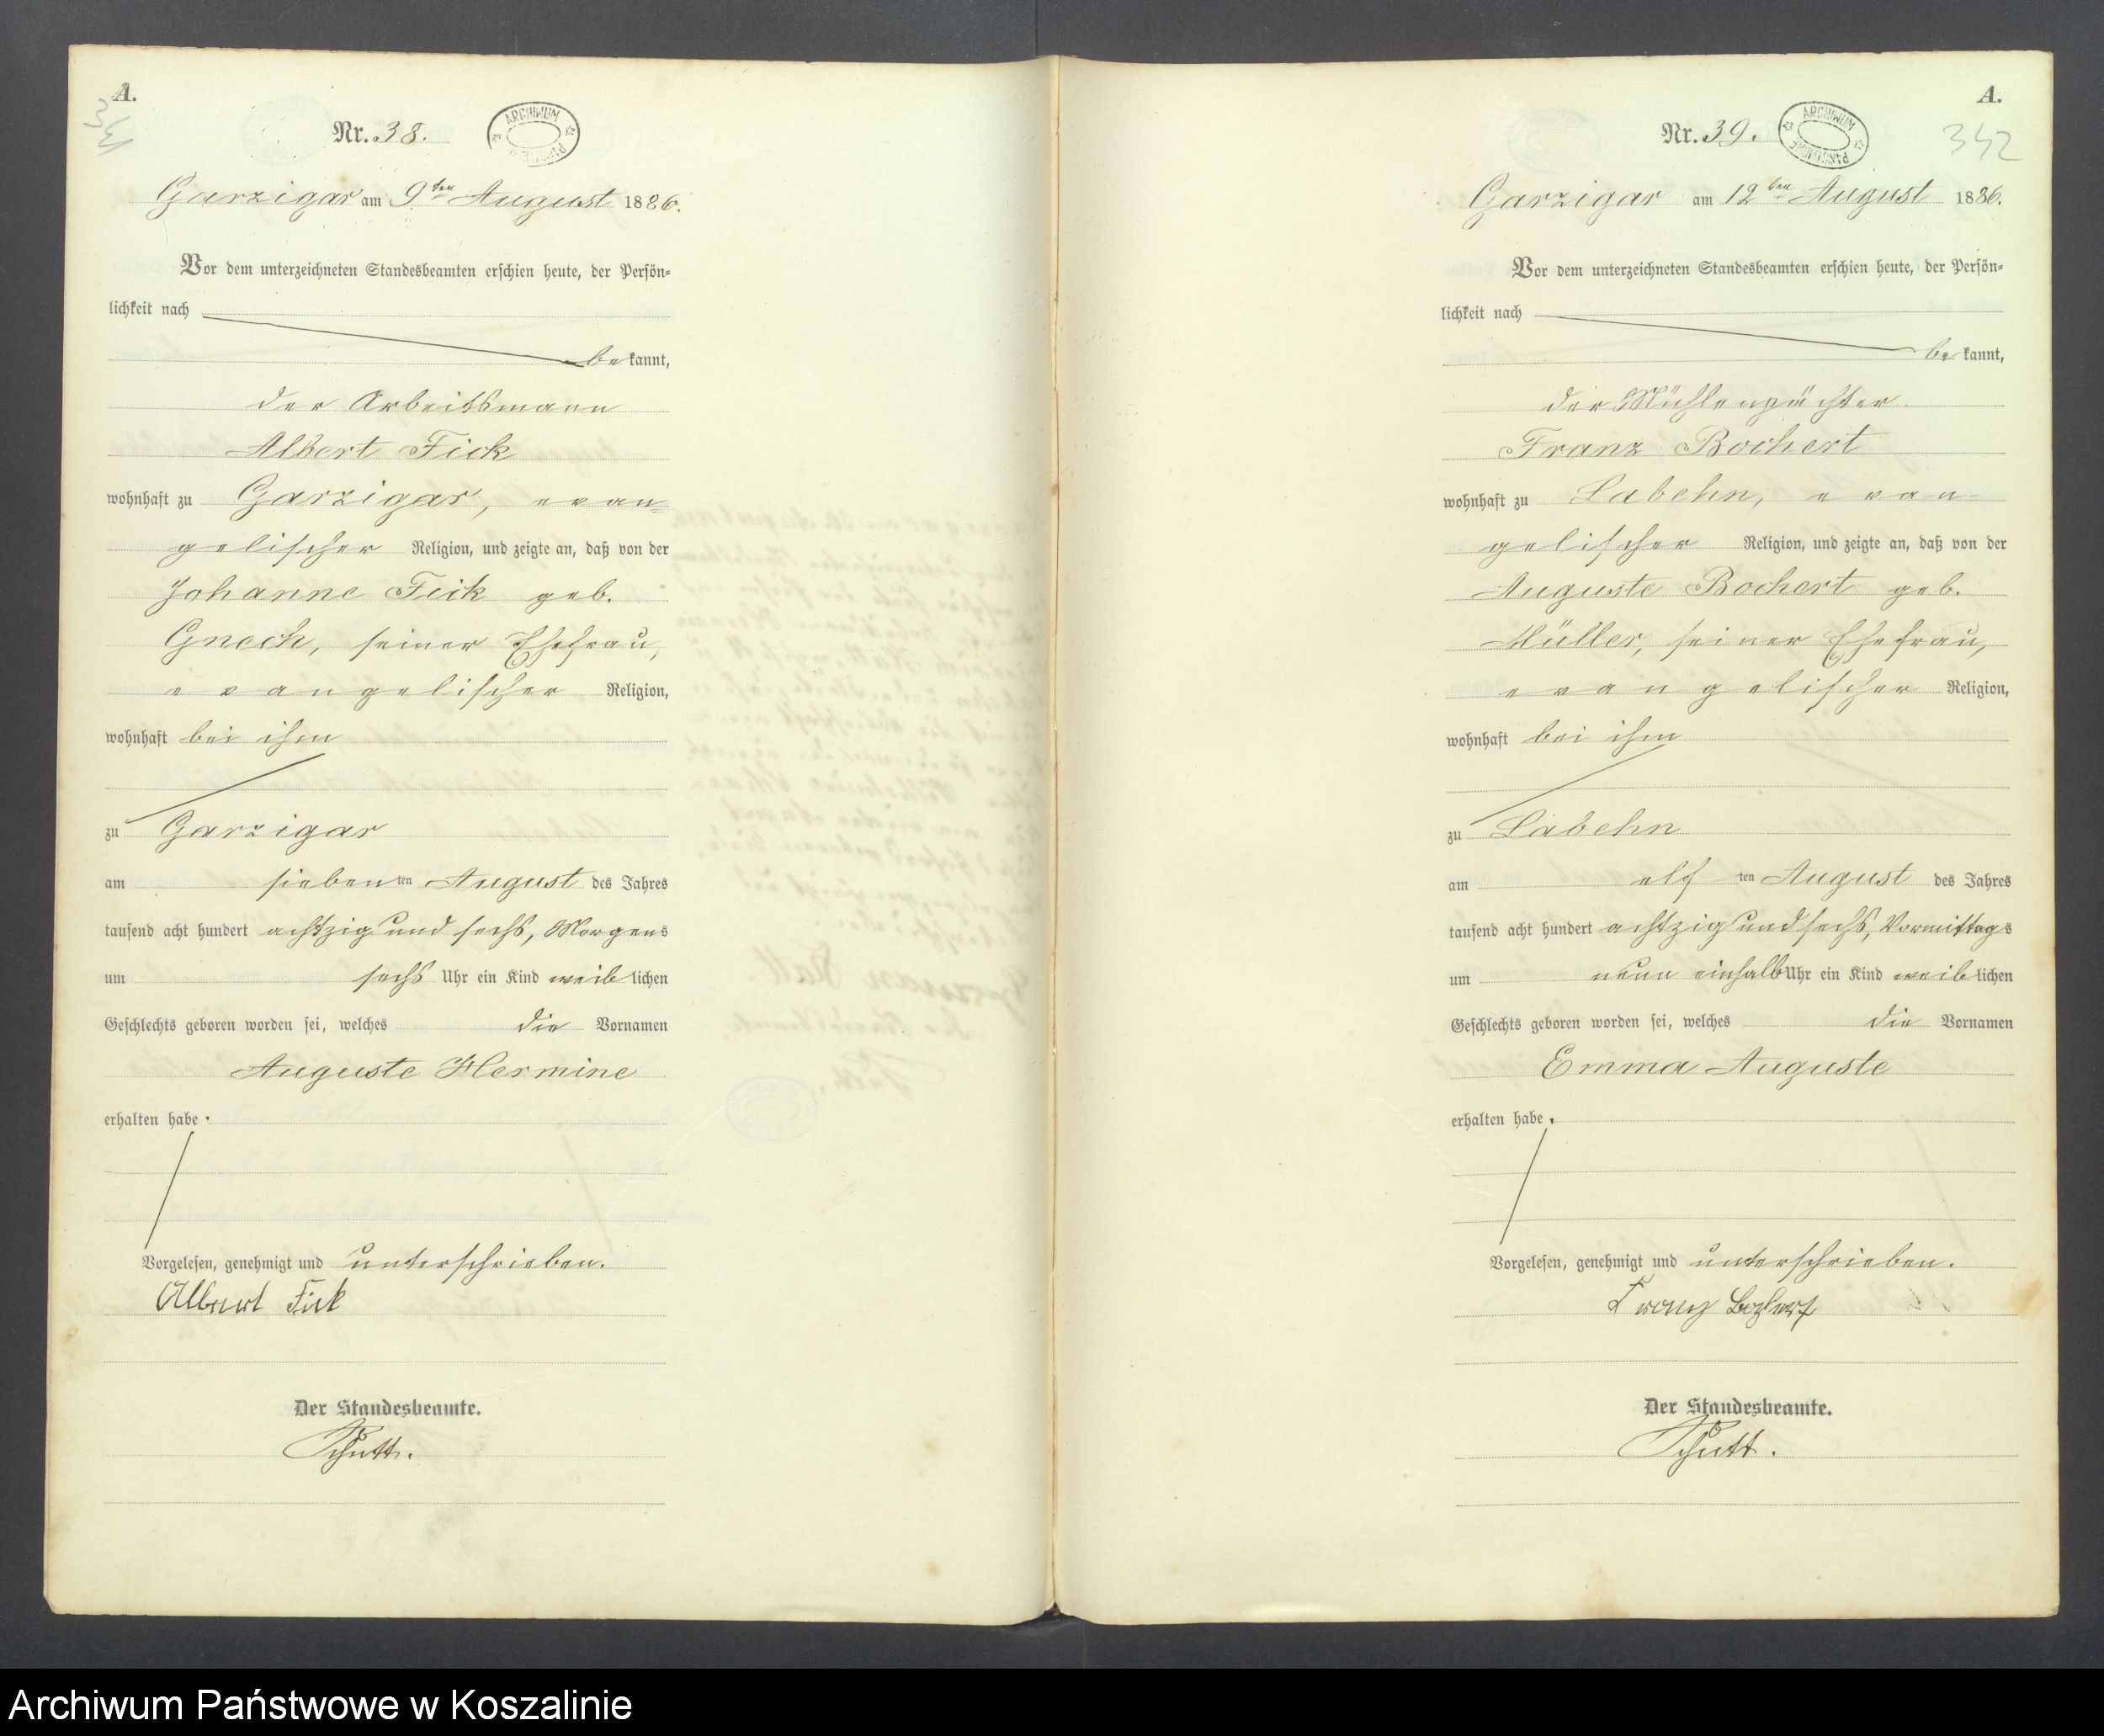 A.
341
Nr. 38.
ARCHIWUM
Garzigar am 9ten August 1886.
Vor dem unterzeichneten Standesbeamten erschien heute, der Persön-
lichkeit nach
bekannt,
der Arbeitsmann
Albert Fick
wohnhaft zu Garzigar, evan-
gelischer Religion, und zeigte an, daß von der
Johanne Fick geb.
Gnech, seiner Ehefrau,
evangelischer Religion,
wohnhaft bei ihm
zu Garzigar
am siebenten August des Jahres
tausend acht hundert achtzig und sechs, Morgens
um sechs Uhr ein Kind weiblichen
Geschlechts geboren worden sei, welches die Vornamen
Auguste Hermine
erhalten habe.
Vorgelesen, genehmigt und unterschrieben.
Albert Fick
Der Standesbeamte.
Schutt.
A.
342
Nr. 39.
ARCHIWUM PAŃSTWOWE
Garzigar am 12ten August 1886.
Vor dem unterzeichneten Standesbeamten erschien heute, der Persön-
lichkeit nach
bekannt,
der Mühlenpächter
Franz Bochert
wohnhaft zu Labehn, evan-
gelischer Religion, und zeigte an, daß von der
Auguste Bochert geb.
Müller, seiner Ehefrau,
evangelischer Religion,
wohnhaft bei ihm
zu Labehn
am elften August des Jahres
tausend acht hundert achtzig und sechs, Vormittags
um neun einhalb Uhr ein Kind weiblichen
Geschlechts geboren worden sei, welches die Vornamen
Emma Auguste
erhalten habe.
Vorgelesen, genehmigt und unterschrieben.
Franz Bochert
Der Standesbeamte.
Schutt.
Archiwum Państwowe w Koszalinie